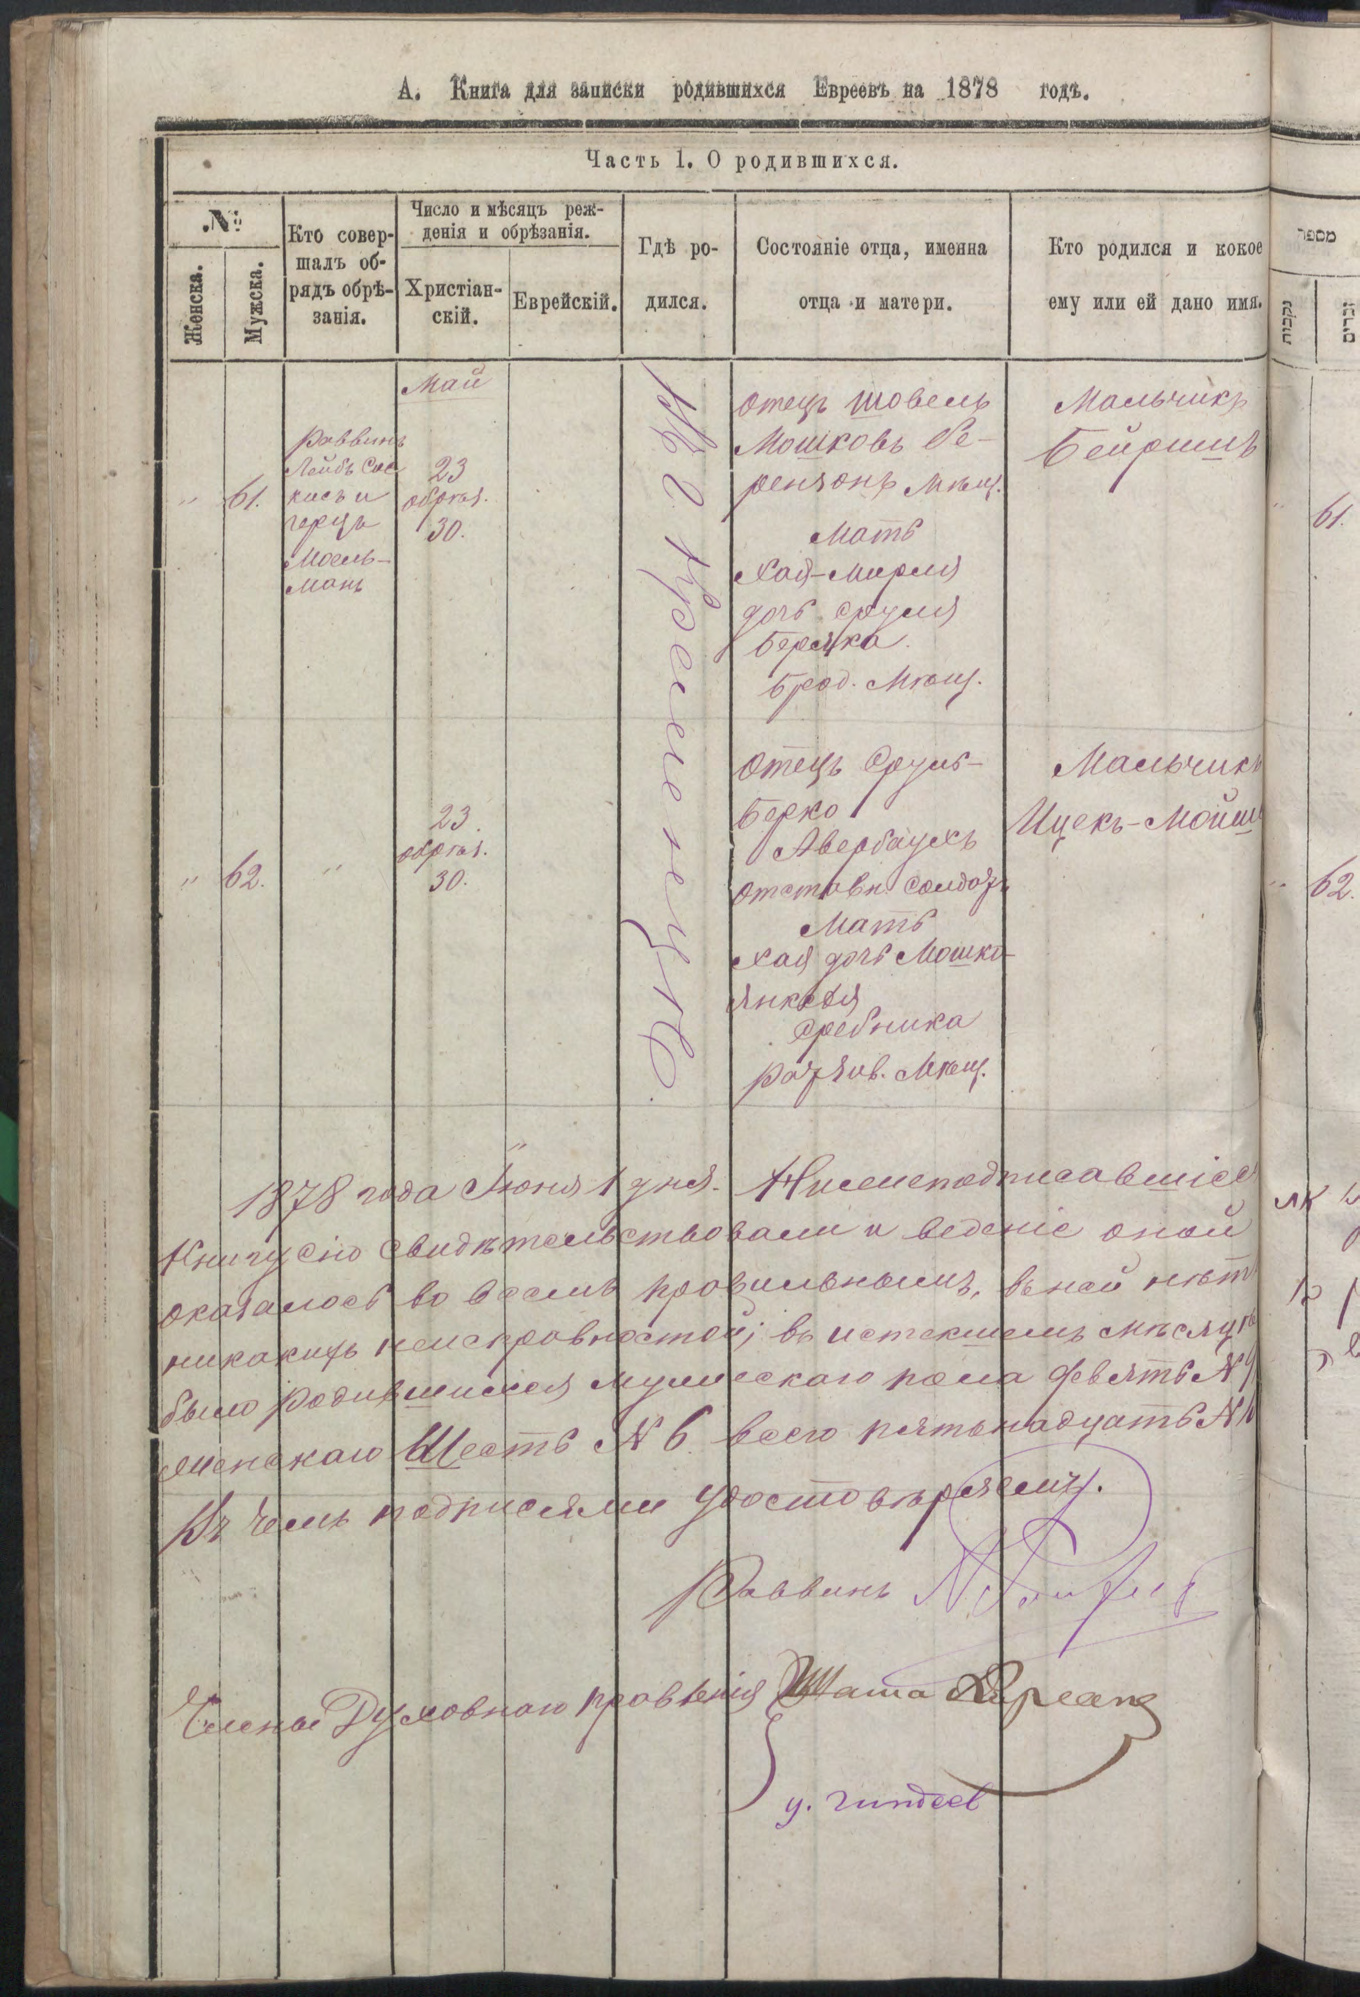 А. Книга для записки родившихся Евреевъ на 1878 годъ.
Часть 1. О родившихся.
№
Женска.
Мужска.
Кто совер-
шалъ об-
рядъ обрѣ-
занія.
Число и мѣсяцъ рож-
денія и обрѣзанія.
Христіан-
скій.
Еврейскій.
Гдѣ ро-
дился.
Состояніе отца, имена
отца и матери.
Кто родился и кокое
ему или ей дано имя.
מספר
נקבות
זכרים
Май
"
61.
Раввинъ
Лейбъ
кисъ и
Герцъ
Моель-
манъ
23
обрѣз.
30.
Въ г. Кременецѣ
Отецъ Шовель
Мошковъ Бе-
рензонъ Мѣщ.
Мать
Хая-Мирля
дочь Сруля
Беряка
Брод. Мѣщ.
Мальчикъ
Бейришъ
61.
"
62.
"
23.
обрѣз.
30.
Отецъ Сруль-
Берко
Авербаухъ
отставн. Солдатъ
Мать
Хая дочь Мошко-
Янкеля
Сребника
Радзив. Мѣщ.
Мальчикъ
Ицекъ-Мойше
62.
1878 года Іюня 1 дня. Нижеподписавшіеся
Книгу сію свидѣтельствовали и веденіе оной
оказалось во всемъ провильнымъ, въ ней нѣтъ
никакихъ неисправностей; въ истекшемъ мѣсяцѣ
было родившимися мужескаго пола девять № 9
женскаго Шесть № 6 всего пятьнадцать №
Въ чемъ подписями удостовѣряемъ.
Раввинъ
Члены Духовнаго провленія Шата